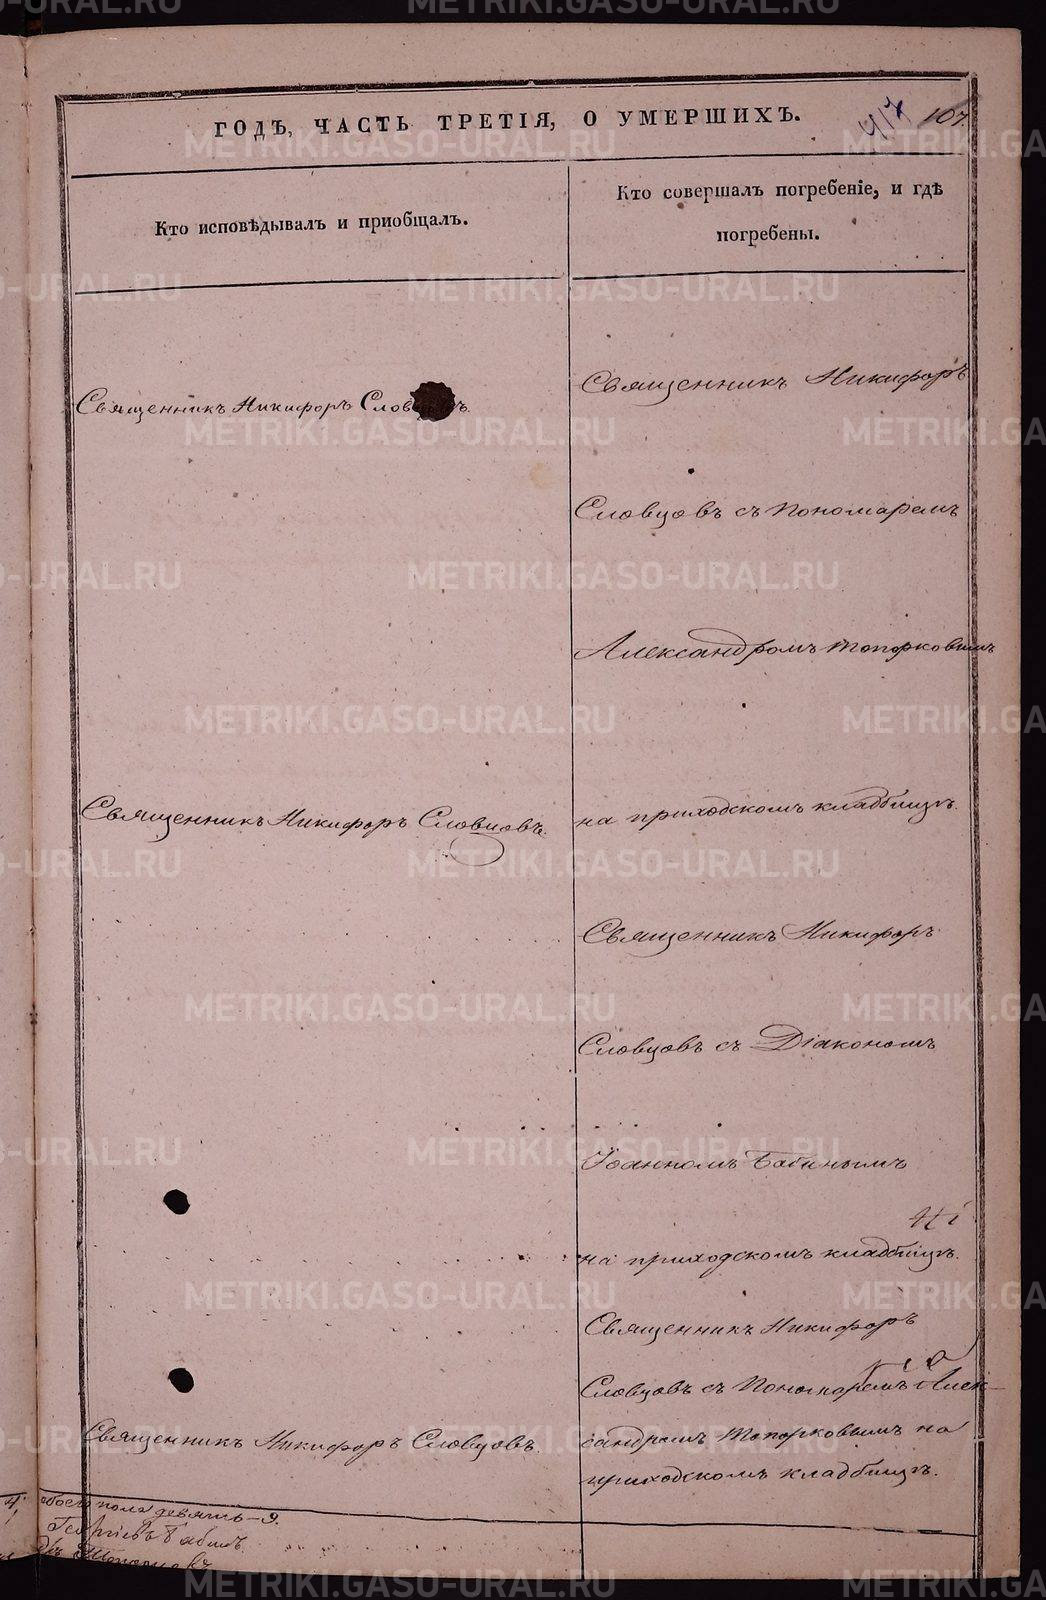 ГОДЪ, ЧАСТЬ ТРЕТІЯ, О УМЕРШИХЪ.
417 107.
Кто исповѣдывалъ и пріобщалъ.
Кто совершалъ погребеніе, и гдѣ
погребены.
Священникъ Никифоръ Словцовъ.
Священникъ Никифоръ
Словцовъ съ Пономаремъ
Александромъ Топорковымъ
на приходскомъ кладбищѣ.
Священникъ Никифоръ Словцовъ.
Священникъ Никифоръ
Словцовъ съ Діакономъ
Іоанномъ Бабинымъ
на приходскомъ кладбищѣ.
Священникъ Никифоръ
Словцовъ съ Пономаремъ Алек-
сандромъ Топорковымъ на
приходскомъ кладбищѣ.
Священникъ Никифоръ Словцовъ.
пола девять - 9.
METRIKI.GASO-URAL.RU